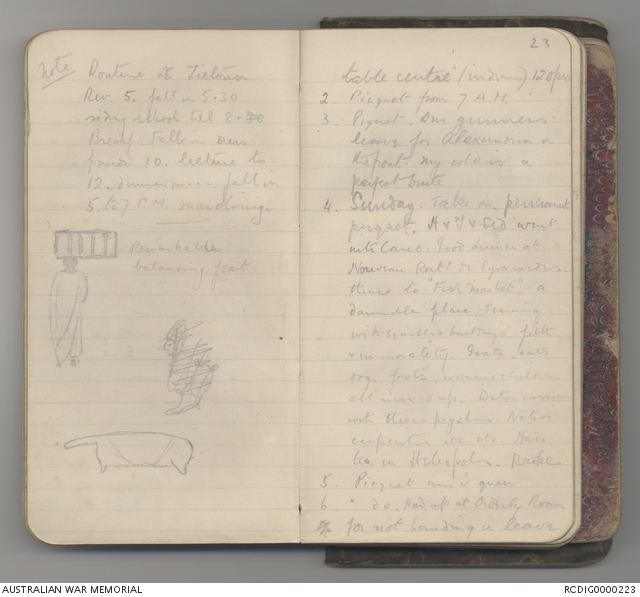 Note Routine at Zietoun
Rev. 5. fall in 5.30
riding school till 8.30
Breakf. talk in
parade 10. lecture to
12. dinner fall in
5 to 7 P.M.
Remarkable
balancing feat.
23
table centre (indian) 120 pis
2. Picquet from 7 A.M.
3. Piquet. Our gunners
leave for Alexandria or
the front. My cold is a
perfect brute
4. Sunday. Take on permanent
piequet. H & I & Sid went
into Cairo. Good dinner at
Nouveau Rest. de Pyramides
thence to "Fish Market" a
damnable place. Teeming
with squallid buildings filth
& immorality. Goats, cats
dogs, fowls, women & children
all mixed up. Date
with their Native
carpenters etc etc. Have
tea in Heliopolis.
5. Picquet am v queer
6. " do. Had up at Orderly Room
for not handing in leave
AUSTRALIAN WAR MEMORIAL
RCDIG0000223